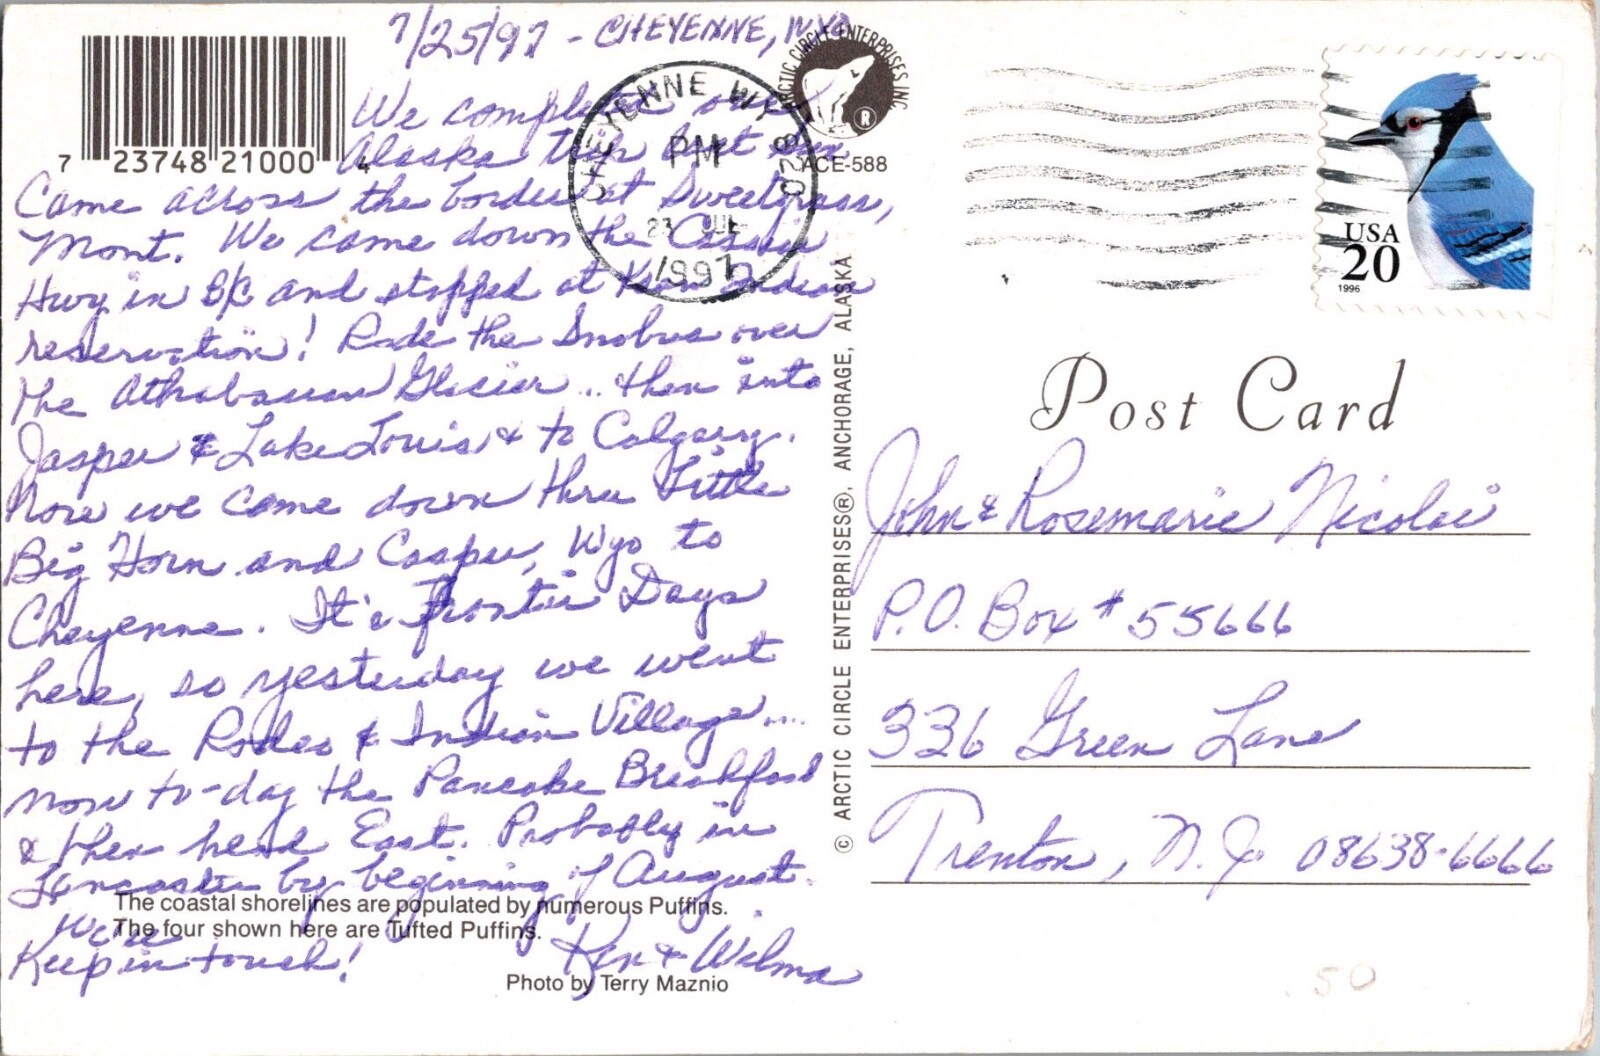 7/25/97 - CHEYENNE, WYO
We completed our
Alaska trip last Sun.
Came across the border at Sweetgrass,
Mont. We came down the Cassiar
Hwy in B/C and stopped at Ksan Indian
reservation! Rode the Snobus over
the Athabascan Glacier... then into
Jasper & Lake Louis & to Calgary.
Now we came down thru Little
Big Horn and Casper, Wyo to
Cheyenne. It's Frontier Days
here, so yesterday we went
to the Rodeo & Indian Village...
now to-day the Pancake Breakfast
& then head East. Probably in
Lancaster by beginning of August.
We'll
Keep in touch!
Ken & Wilma
7 23748 21000 4
CHEYENNE WY 820
PM
23 JUL
1997
ARCTIC CIRCLE ENTERPRISES INC
®
ACE-588
The coastal shorelines are populated by numerous Puffins.
The four shown here are Tufted Puffins.
Photo by Terry Maznio
© ARCTIC CIRCLE ENTERPRISES®, ANCHORAGE, ALASKA
USA
20
1996
Post Card
John & Rosemarie Nicolai
P.O. Box # 55666
336 Green Lane
Trenton, N.J. 08638-6666
.50